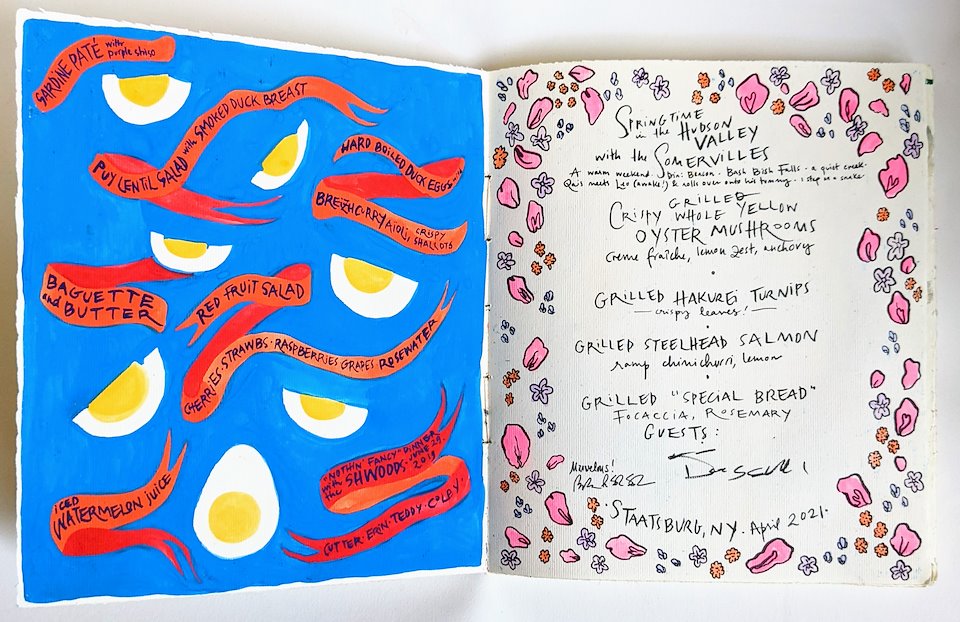 SARDINE PATÉ with
purple shiso
PUY LENTIL SALAD with SMOKED DUCK BREAST
HARD BOILED DUCK EGGS with
BREIZH CURRY AÏOLI, CRISPY
SHALLOTS
BAGUETTE
and BUTTER
RED FRUIT SALAD
CHERRIES · STRAWBS · RASPBERRIES GRAPES ROSEWATER
ICED
WATERMELON JUICE
"NOTHIN' FANCY" DINNER
with the SHWOODS · JUNE 29 ·
2019
CUTTER · ERIN · TEDDY · COLBY ·
SPRINGTIME
in the HUDSON
VALLEY
with the SOMERVILLES
A warm weekend. Dia: Beacon - Bash Bish Falls - a quiet creek.
Quis meets Leo (awake!) & rolls over onto his tummy. I step on a snake
GRILLED
CRISPY WHOLE YELLOW
OYSTER MUSHROOMS
creme fraîche, lemon zest, anchovy
GRILLED HAKUREI TURNIPS
— crispy leaves! —
GRILLED STEELHEAD SALMON
ramp chimichurri, lemon
GRILLED "SPECIAL BREAD"
FOCACCIA, ROSEMARY
GUESTS:
Marvelous!
STAATSBURG, NY. April 2021.